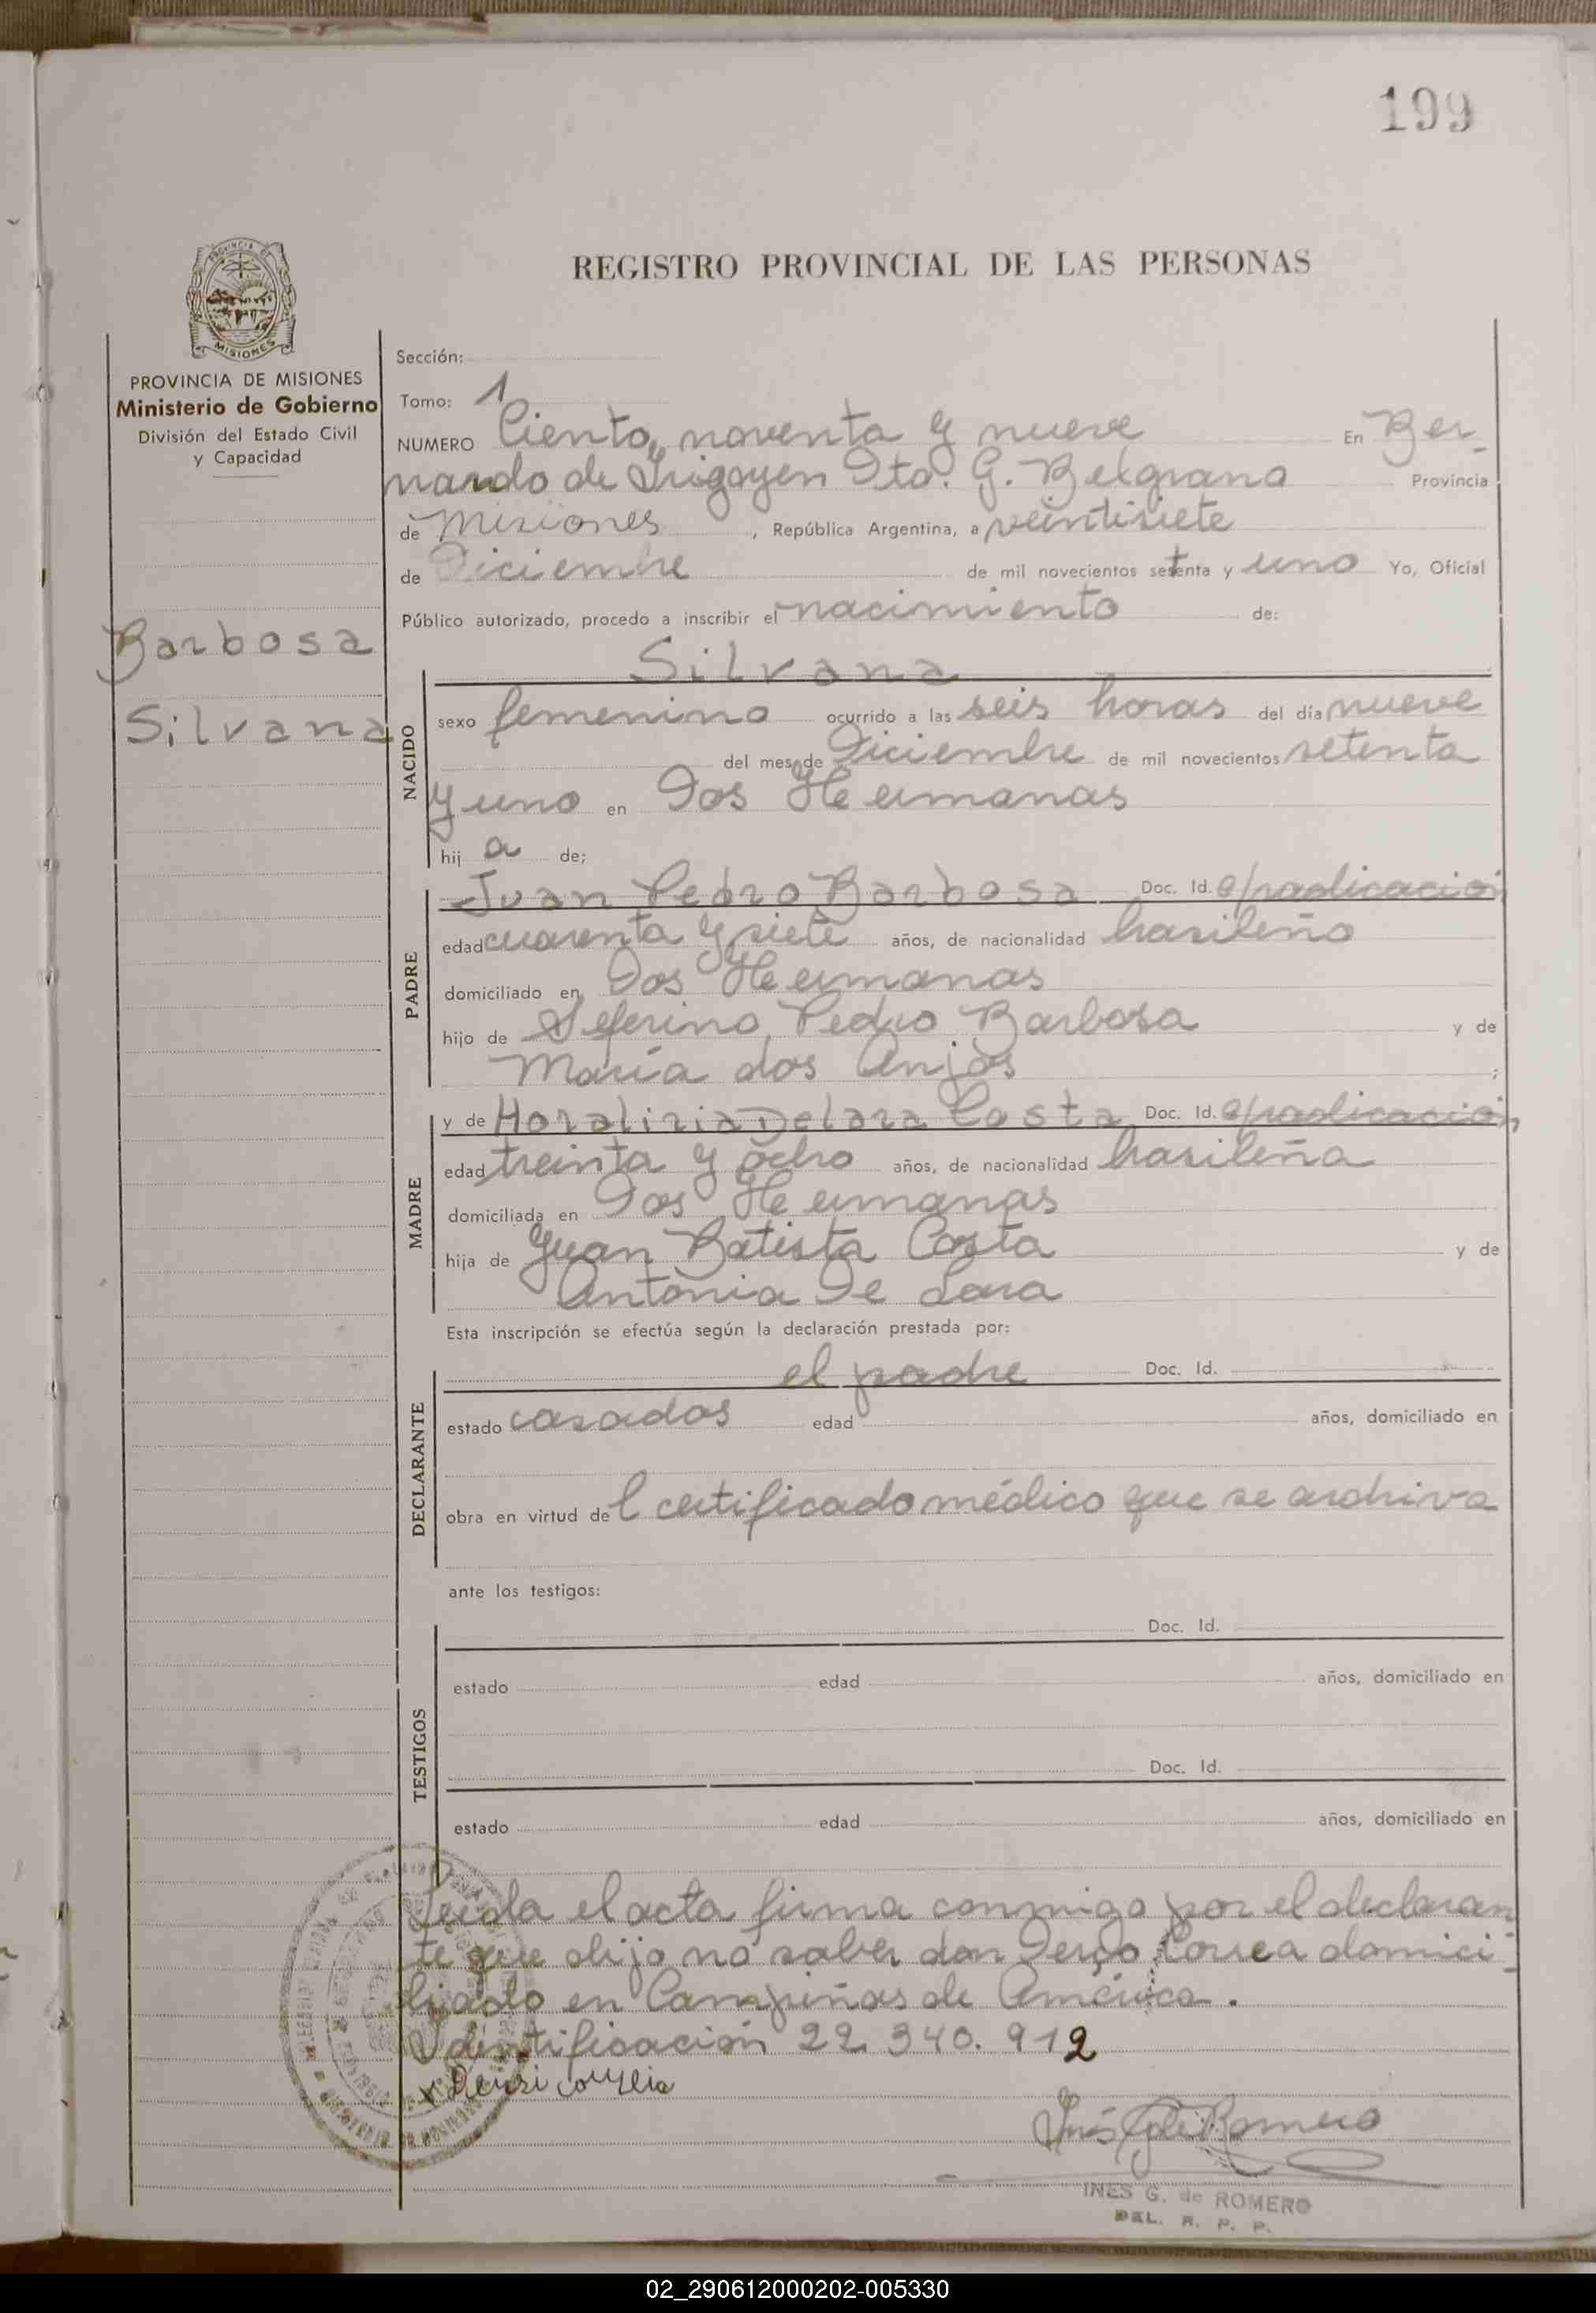 199
REGISTRO PROVINCIAL DE LAS PERSONAS
MISIONES
PROVINCIA DE MISIONES
Ministerio de Gobierno
División del Estado Civil
y Capacidad
Barbosa
Silvana
Sección:
Tomo: 1
NUMERO Ciento noventa y nueve En Ber-
nardo de Irigoyen Dto. G. Belgrano Provincia
de Misiones, República Argentina, a veintisiete
de Diciembre de mil novecientos setenta y uno Yo, Oficial
Público autorizado, procedo a inscribir el nacimiento de:
Silvana
NACIDO
sexo femenino ocurrido a las seis horas del día nueve
del mes de Diciembre de mil novecientos setenta
y uno en Dos Hermanas
hij a de;
PADRE
Juan Pedro Barbosa Doc. Id. c/radicación
edad cuarenta y siete años, de nacionalidad brasileño
domiciliado en Dos Hermanas
hijo de Seferino Pedro Barbosa y de
María dos Anjos ;
MADRE
y de Horalizia Delara Costa Doc. Id. c/radicación
edad treinta y ocho años, de nacionalidad brasileña
domiciliada en Dos Hermanas
hija de Juan Batista Costa y de
Antonia De Lara
Esta inscripción se efectúa según la declaración prestada por:
DECLARANTE
el padre Doc. Id.
estado casados edad años, domiciliado en
obra en virtud de l certificado médico que se archiva
ante los testigos:
TESTIGOS
Doc. Id.
estado edad años, domiciliado en
Doc. Id.
estado edad años, domiciliado en
Leida el acta firma conmigo por el declaran
te que dijo no saber don Derço Correa domici-
liado en Campiñas de América.
Identificación 22.340.912
Inés G. de Romero
INES G. de ROMERO
DEL. R. P. P.
02_290612000202-005330